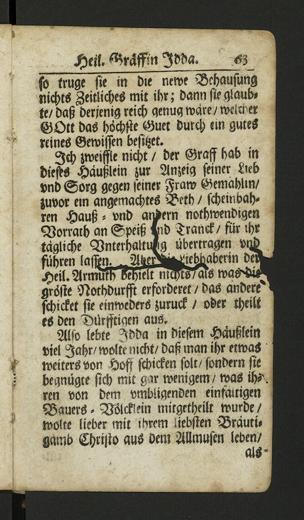 Heil. Gräffin Jdda. 63
so truge sie in die newe Behausung
nichts Zeitliches mit ihr; dann sie glaub-
te/ daß derjenig reich genug wäre/ welcher
GOtt das höchste Guet durch ein gutes
reines Gewissen besitzet.
Jch zweiffle nicht / der Graff hab in
dieses Häußlein zur Anzeig seiner Lieb
vnd Sorg gegen seiner Fraw Gemahlin/
zuvor ein angemachtes Beth / scheinbah-
ren Hauß- vnd andern nothwendigen
Vorrath an Speiß vnd Tranck / für ihr
tägliche Vnterhaltung übertragen vnd
führen lassen. Aber Liebhaberin der
Heil. Armuth behielt nichts/ als was die
gröste Nothdurfft erforderet / das andere
schicket sie einweders zuruck / oder theilt
es den Dürfftigen aus.
Also lebte Jdda in diesem Häußlein
viel Jahr/ wolte nicht/ daß man ihr etwas
weiters von Hoff schicken solt/ sondern sie
begnügte sich mit gar wenigem / was ih-
ren von dem vmbligenden einfältigen
Bauers-Völcklein mitgetheilt wurde/
wolte lieber mit ihrem liebsten Bräuti-
gamb Christo aus dem Allmusen leben/
als